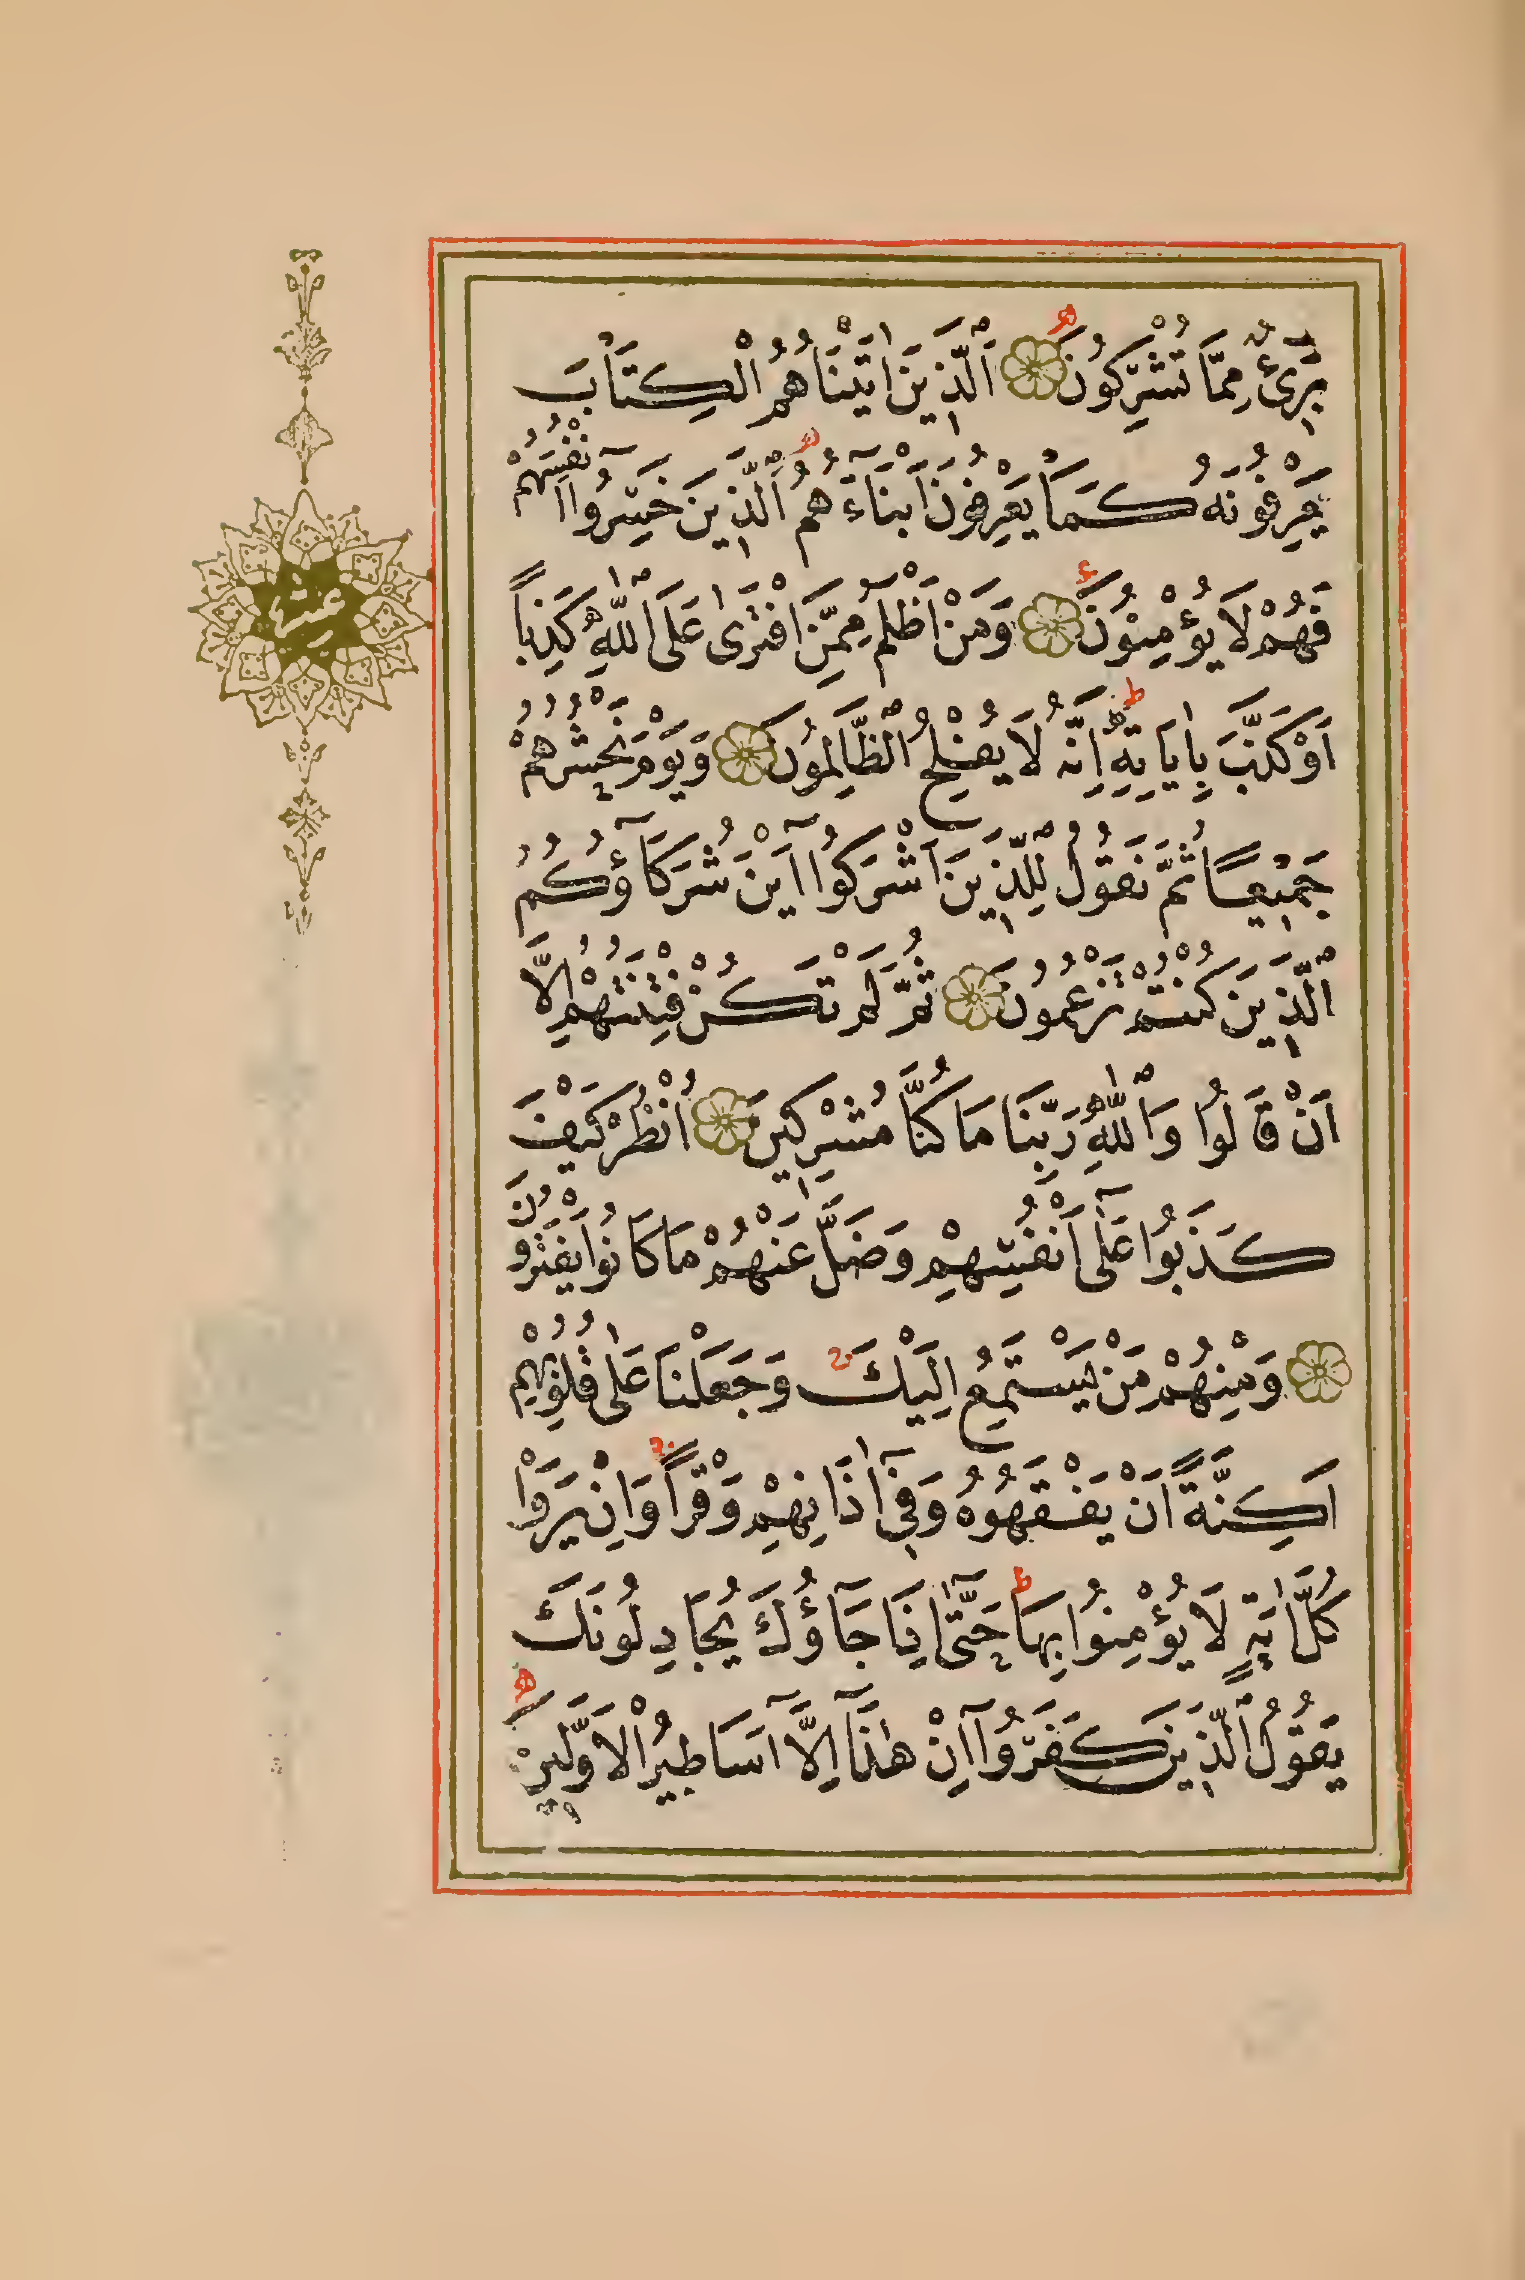 بَرِيٓءٌ مِمَّا تُشْرِكُونَ ۝ اَلَّذِينَ اٰتَيْنَاهُمُ الْكِتَابَ
يَعْرِفُونَهُ كَمَا يَعْرِفُونَ اَبْنَآءَهُمُ اَلَّذِينَ خَسِرُوٓا اَنْفُسَهُمْ
فَهُمْ لَا يُؤْمِنُونَ ۝ وَمَنْ اَظْلَمُ مِمَّنِ افْتَرٰى عَلَى اللّٰهِ كَذِبًا
اَوْ كَذَّبَ بِاٰيَاتِهِ اِنَّهُ لَا يُفْلِحُ الظَّالِمُونَ ۝ وَيَوْمَ نَحْشُرُهُمْ
جَمِيعًا ثُمَّ نَقُولُ لِلَّذِينَ اَشْرَكُوٓا اَيْنَ شُرَكَآؤُكُمُ
الَّذِينَ كُنْتُمْ تَزْعُمُونَ ۝ ثُمَّ لَمْ تَكُنْ فِتْنَتُهُمْ اِلَّا
اَنْ قَالُوا وَاللّٰهِ رَبِّنَا مَا كُنَّا مُشْرِكِينَ ۝ اُنْظُرْ كَيْفَ
كَذَبُوا عَلٰٓى اَنْفُسِهِمْ وَضَلَّ عَنْهُمْ مَا كَانُوا يَفْتَرُونَ
۝ وَمِنْهُمْ مَنْ يَسْتَمِعُ اِلَيْكَ وَجَعَلْنَا عَلٰى قُلُوبِهِمْ
اَكِنَّةً اَنْ يَفْقَهُوهُ وَفِٓي اٰذَانِهِمْ وَقْرًا وَاِنْ يَرَوْا
كُلَّ اٰيَةٍ لَا يُؤْمِنُوا بِهَا حَتّٰٓى اِذَا جَآؤُكَ يُجَادِلُونَكَ
يَقُولُ الَّذِينَ كَفَرُوٓا اِنْ هٰذَٓا اِلَّٓا اَسَاطِيرُ الْاَوَّلِينَ